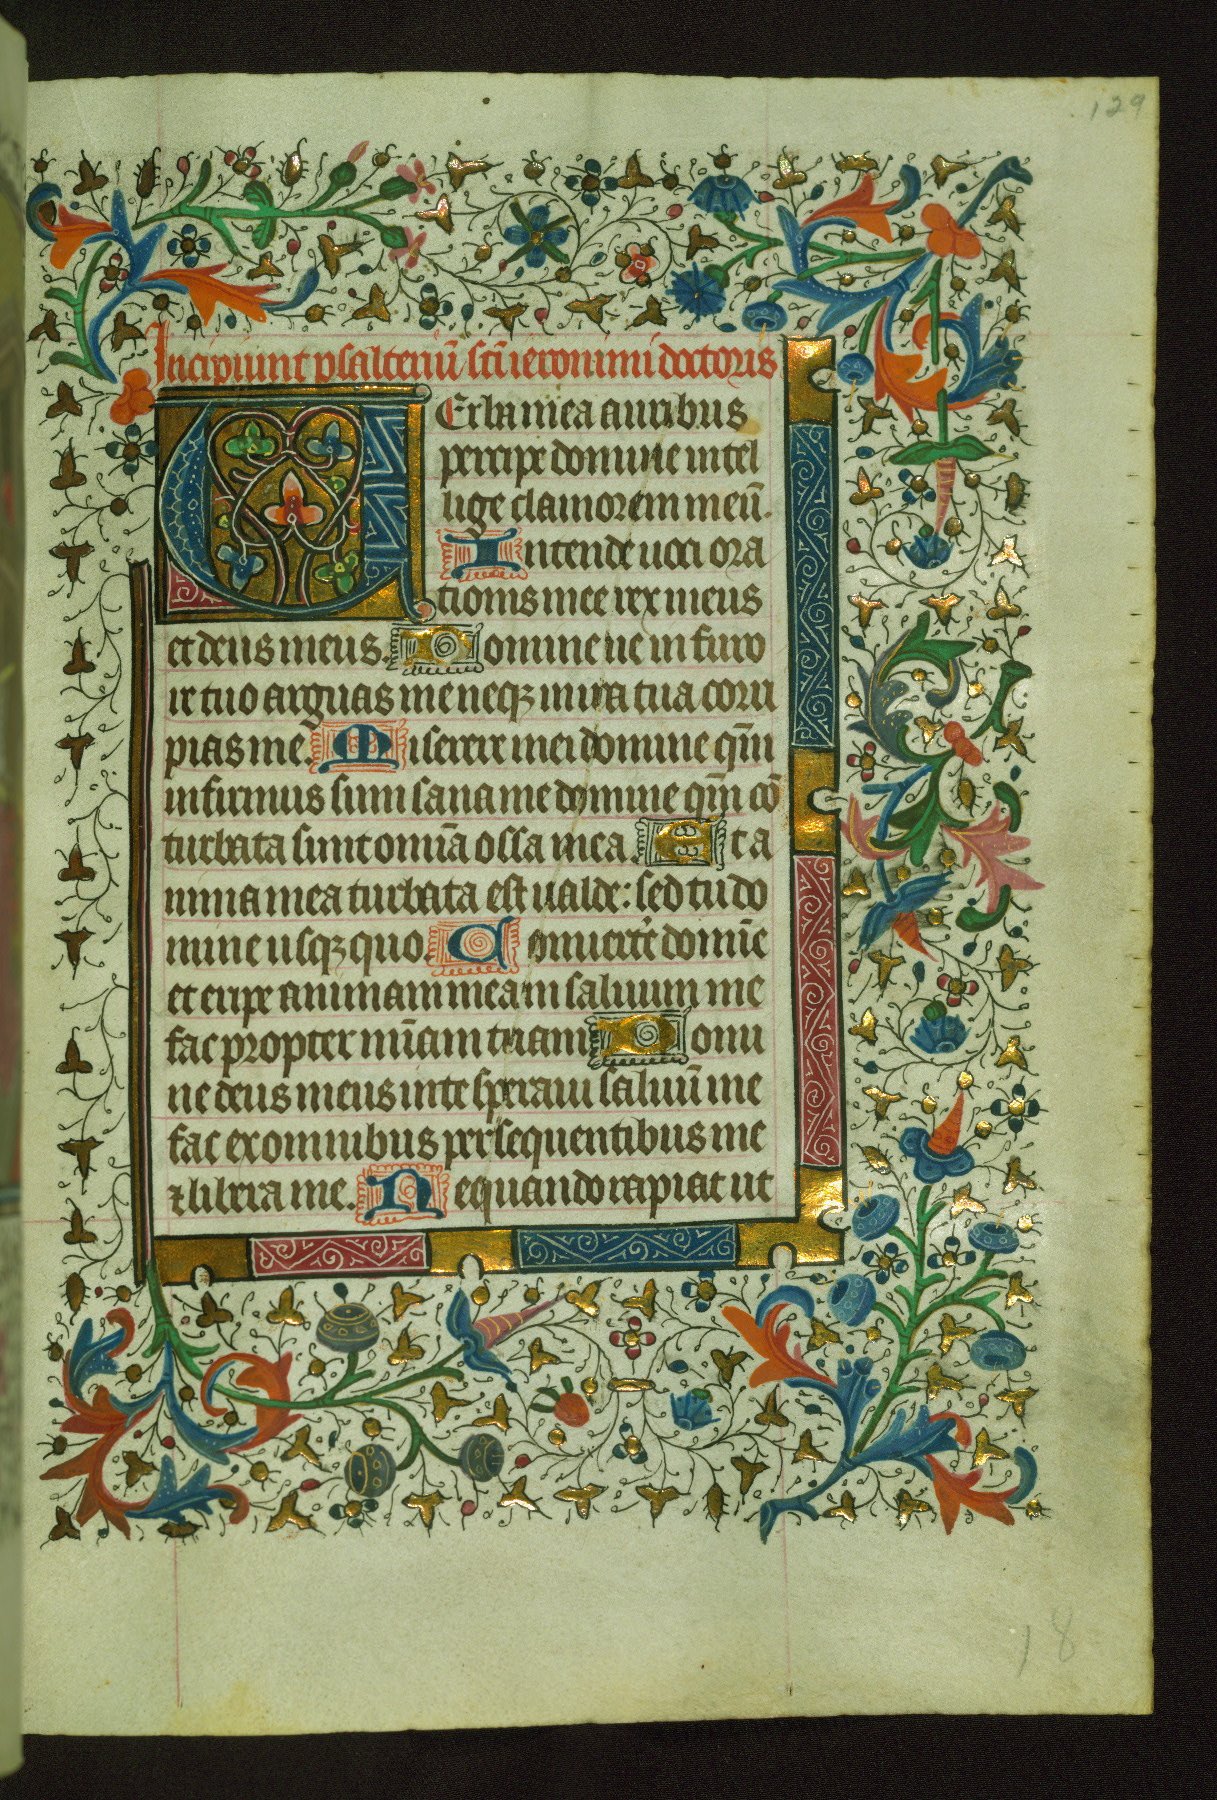 129
Incipiunt psalteriū sc̄i ieronimi doctoris
VErba mea auribus
percipe domine intel
lige clamorem meū.
Intende uoci ora
tionis mee rex meus
et deus meus. Domine ne in furo
re tuo arguas me neqꝫ in ira tua corri
pias me. Miserere mei domine qm̄
infirmus sum sana me domine qm̄ cō
turbata sunt omīa ossa mea. Et a
nima mea turbata est ualde: sed tu do
mine usqꝫ quo. Conuertere domīe
et eripe animam meam saluum me
fac propter mīam tuam Domi
ne deus meus in te speraui saluū me
fac ex omnibus persequentibus me
⁊ libera me. Nequando rapiat ut
18